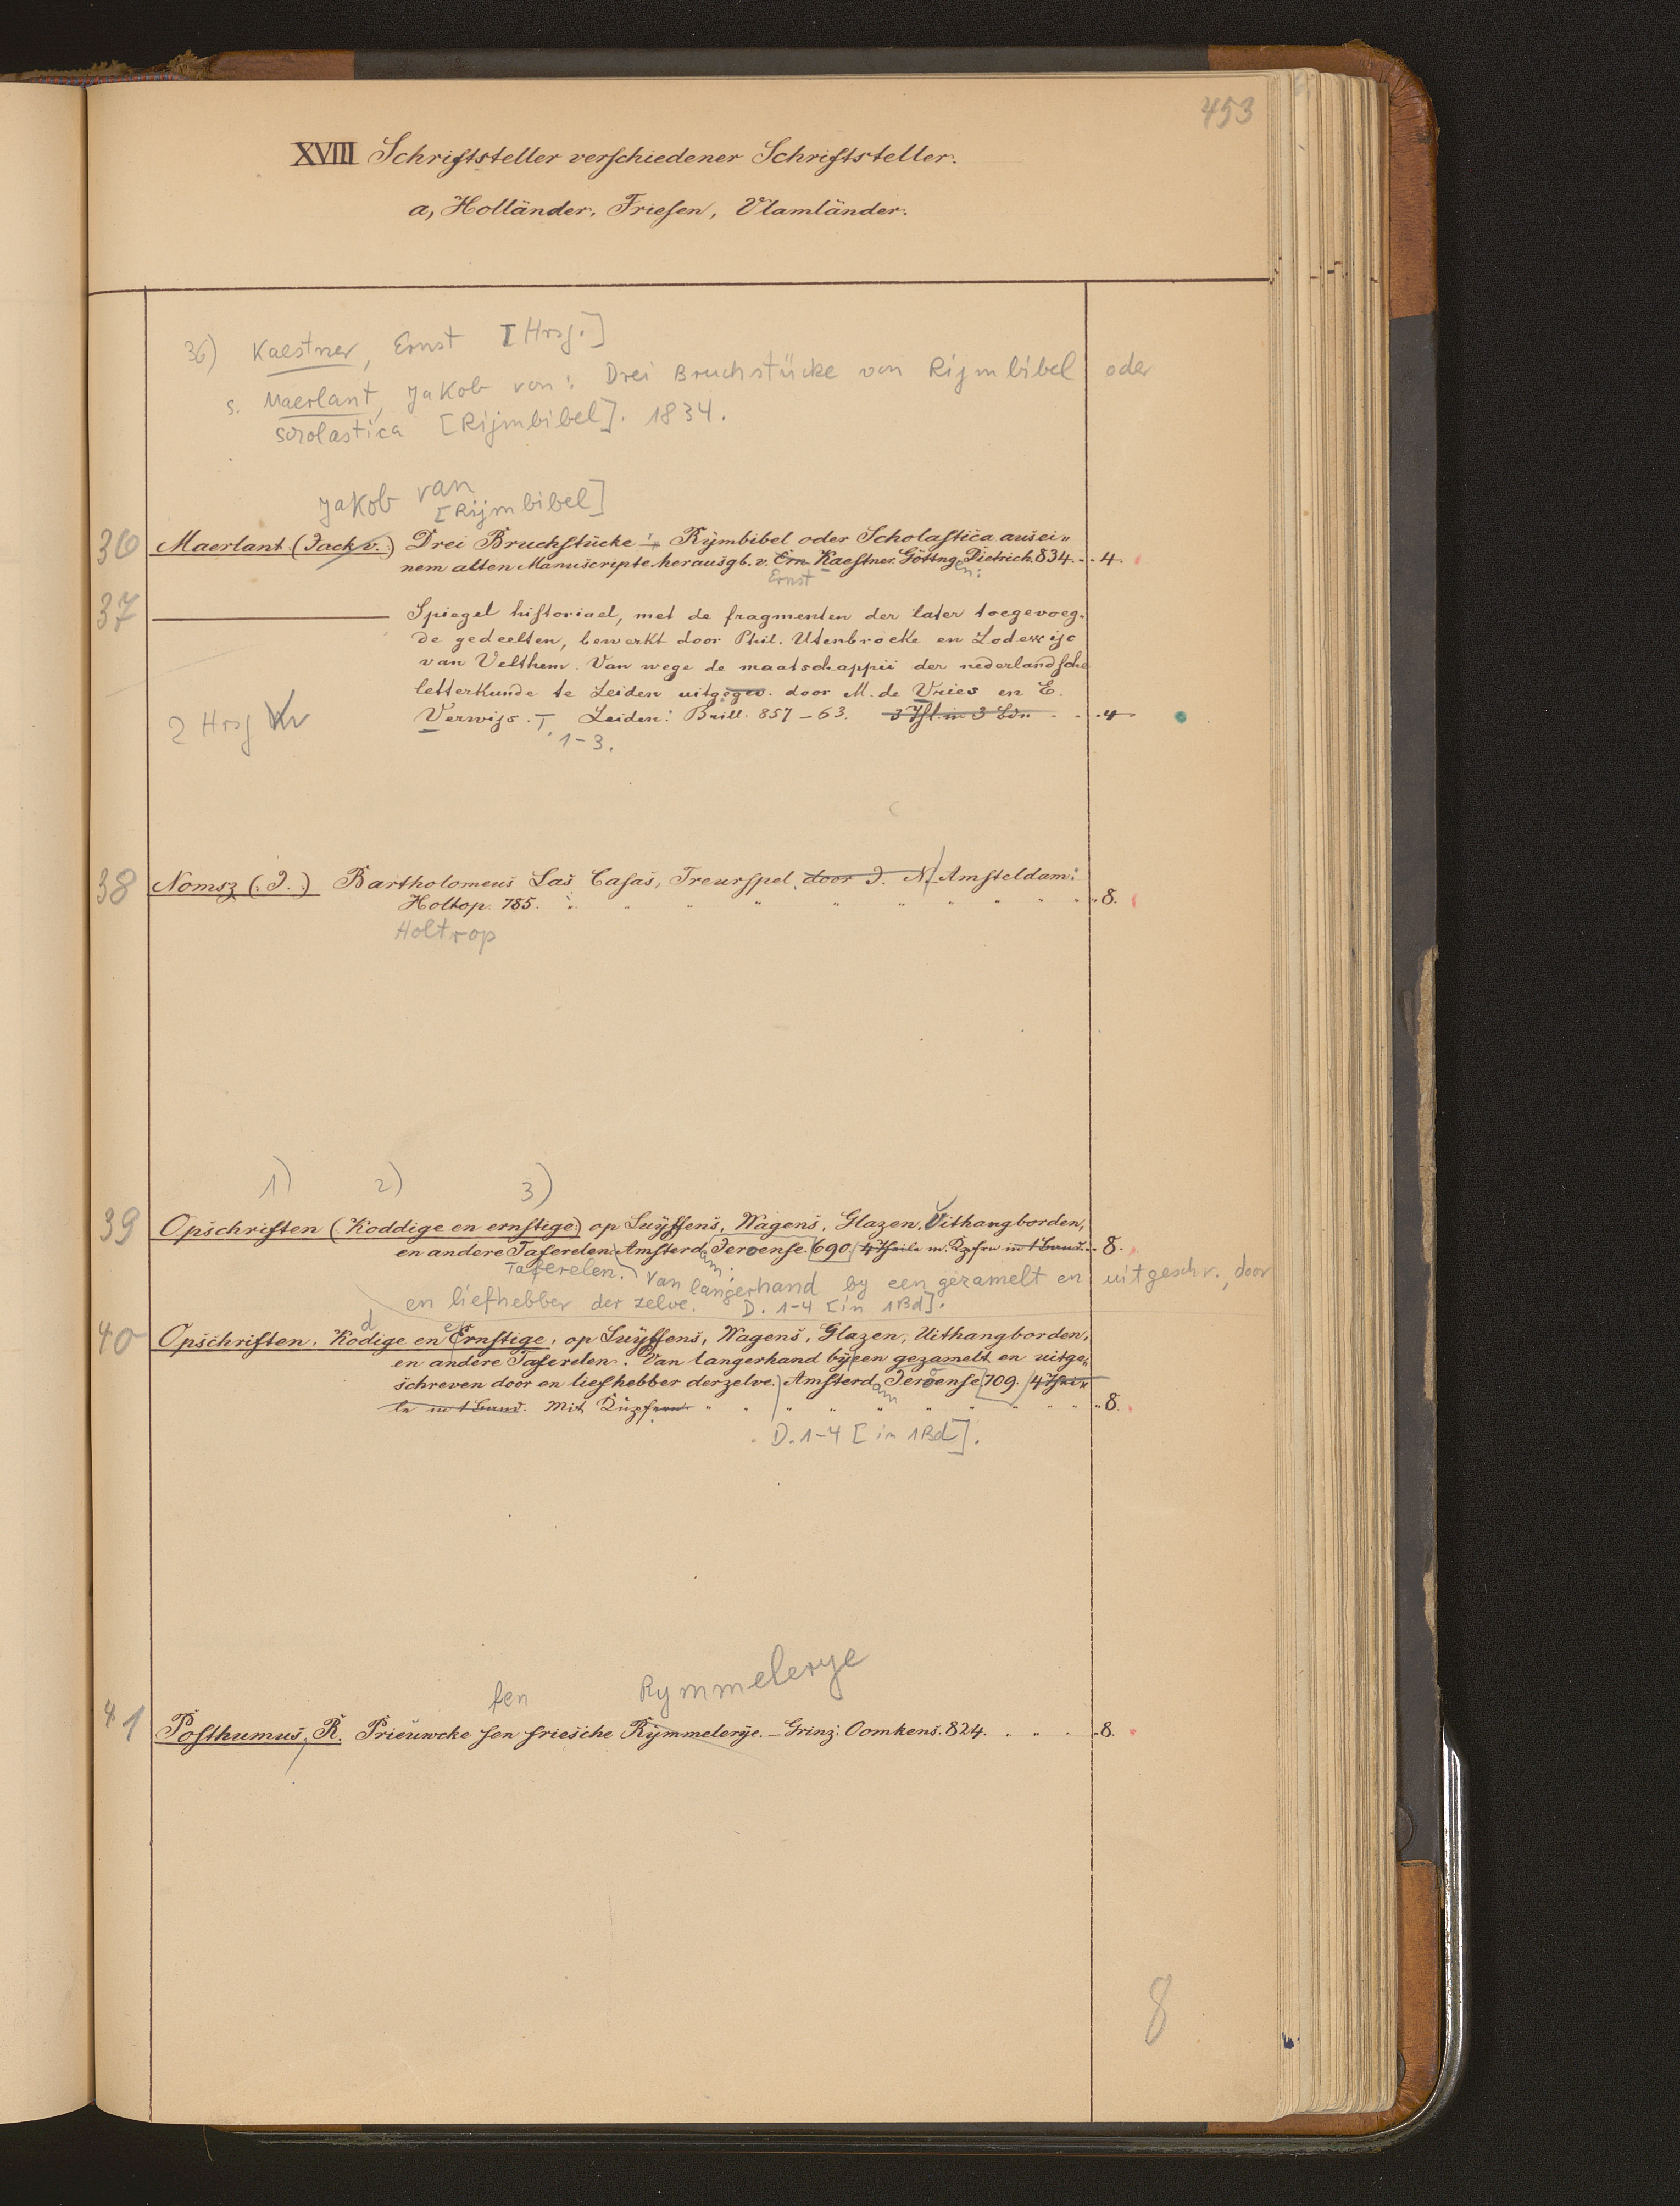 453
XVIII Schriftsteller verschiedener Schriftsteller.
a, Holländer, Friesen, Vlamländer.
36) Kaestner, Ernst [Hrsg.]
s. Maerlant, Jakob van: Drei Bruchstücke von Rijmbibel oder
scolastica [Rijmbibel]. 1834.
Jakob van
[Rijmbibel]
36 Maerlant (Jack v.) Drei Bruchstücke Rymbibel oder Scholastica aus ei„
nem alten Manuscripte herausgb. v. Ern Kaestner. Göttng Dietrich. 834. 4.
Ernst en:
37 Spiegel historiael, met de fragmenten der later toegevoeg„
de gedeelten, bewerkt door Phil. Utenbroeke en Lodewijc
van Velthem. Van wege de maatschappii der nederlandsche
letterkunde te Leiden uitgögev. door M. de Vries en E.
Verwijs. T. Leiden: Brill. 857–63. 3 Thl. in 3 Bdn 4
2 Hrsg Vv
1–3.
38 Nomsz (: J. :) Bartholomeus Las Casas, Treurspel, door J. N. Amsteldam:
Holtop. 785. 8.
Holtrop
1) 2) 3)
39 Opschriften (: Koddige en ernstige:) op Luyffens, Wagens, Glazen, Uithangborden,
en andere Taferelen. Amsterd Jeroense. 690. 4 Theile m. Kpfrn in 1 Band. 8.
am:
Taferelen. Van langerhand by een gezamelt en uitgeschr., door
en liefhebber der zelve. D. 1–4 [in 1Bd].
d e
40 Opschriften. Kodige en Ernstige, op Luyffens, Wagens, Glazen, Uithangborden,
en andere Taferelen. Van langerhand byeen gezamelt en uitge„
schreven door en liefhebber derzelve. Amsterd Jeroense 709. 4 Thei„
am
le in 1 Band. Mit Kupfern 8.
D. 1–4 [in 1Bd].
fen Rymmelerye
41 Posthumus, R. Prieuwcke fen friesche Rymmelerye. – Grinz: Oomkens. 824. 8.
8